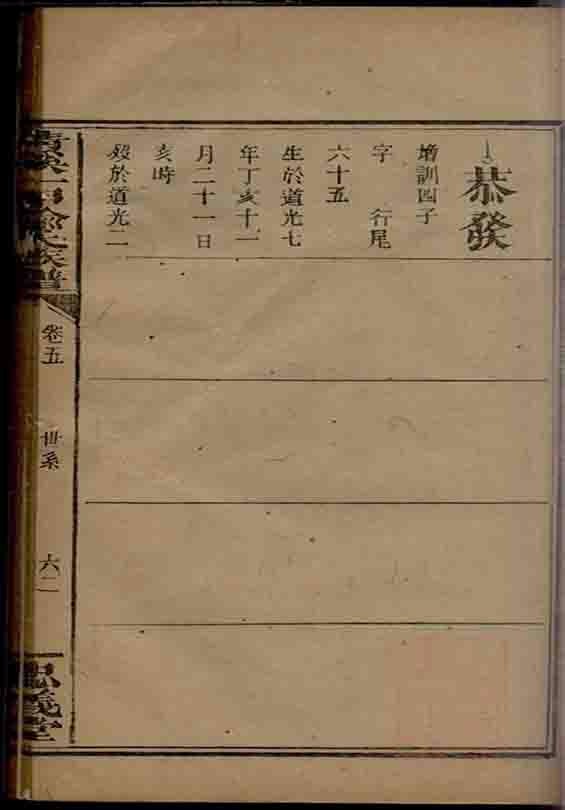 恭發
增訓四子
字 行尾
六十五
生於道光七
年丁亥十二
月二十一日
亥時
歿於道光二
氏族譜
卷五
世系
六二
忠義堂